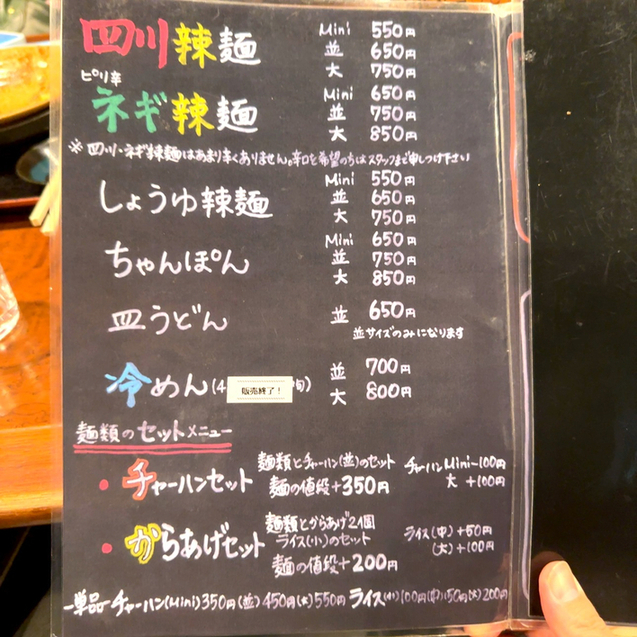 四川辣麺 Mini 550円
並 650円
大 750円
ピリ辛
ネギ辣麺 Mini 650円
並 750円
大 850円
※四川・ネギ辣麺はあまり辛くありません。辛口を希望の方はスタッフまで申しつけ下さい
しょうゆ辣麺 Mini 550円
並 650円
大 750円
ちゃんぽん Mini 650円
並 750円
大 850円
皿うどん 並 650円
並サイズのみになります
冷めん(4 販売終了! 旬) 並 700円
大 800円
麺類のセットメニュー
・チャーハンセット 麺類とチャーハン(並)のセット
麺の値段+350円
チャーハンMini-100円
大 +100円
・からあげセット 麺類とからあげ2個
ライス(小)のセット
麺の値段+200円
ライス(中)+50円
(大)+100円
単品-チャーハン(Mini)350円(並)450円(大)550円 ライス(小)100円(中)150円(大)200円